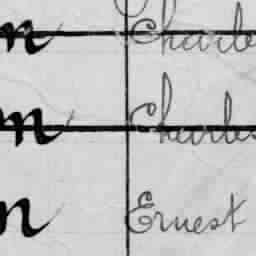 n Charle
n Charles
n Ernest